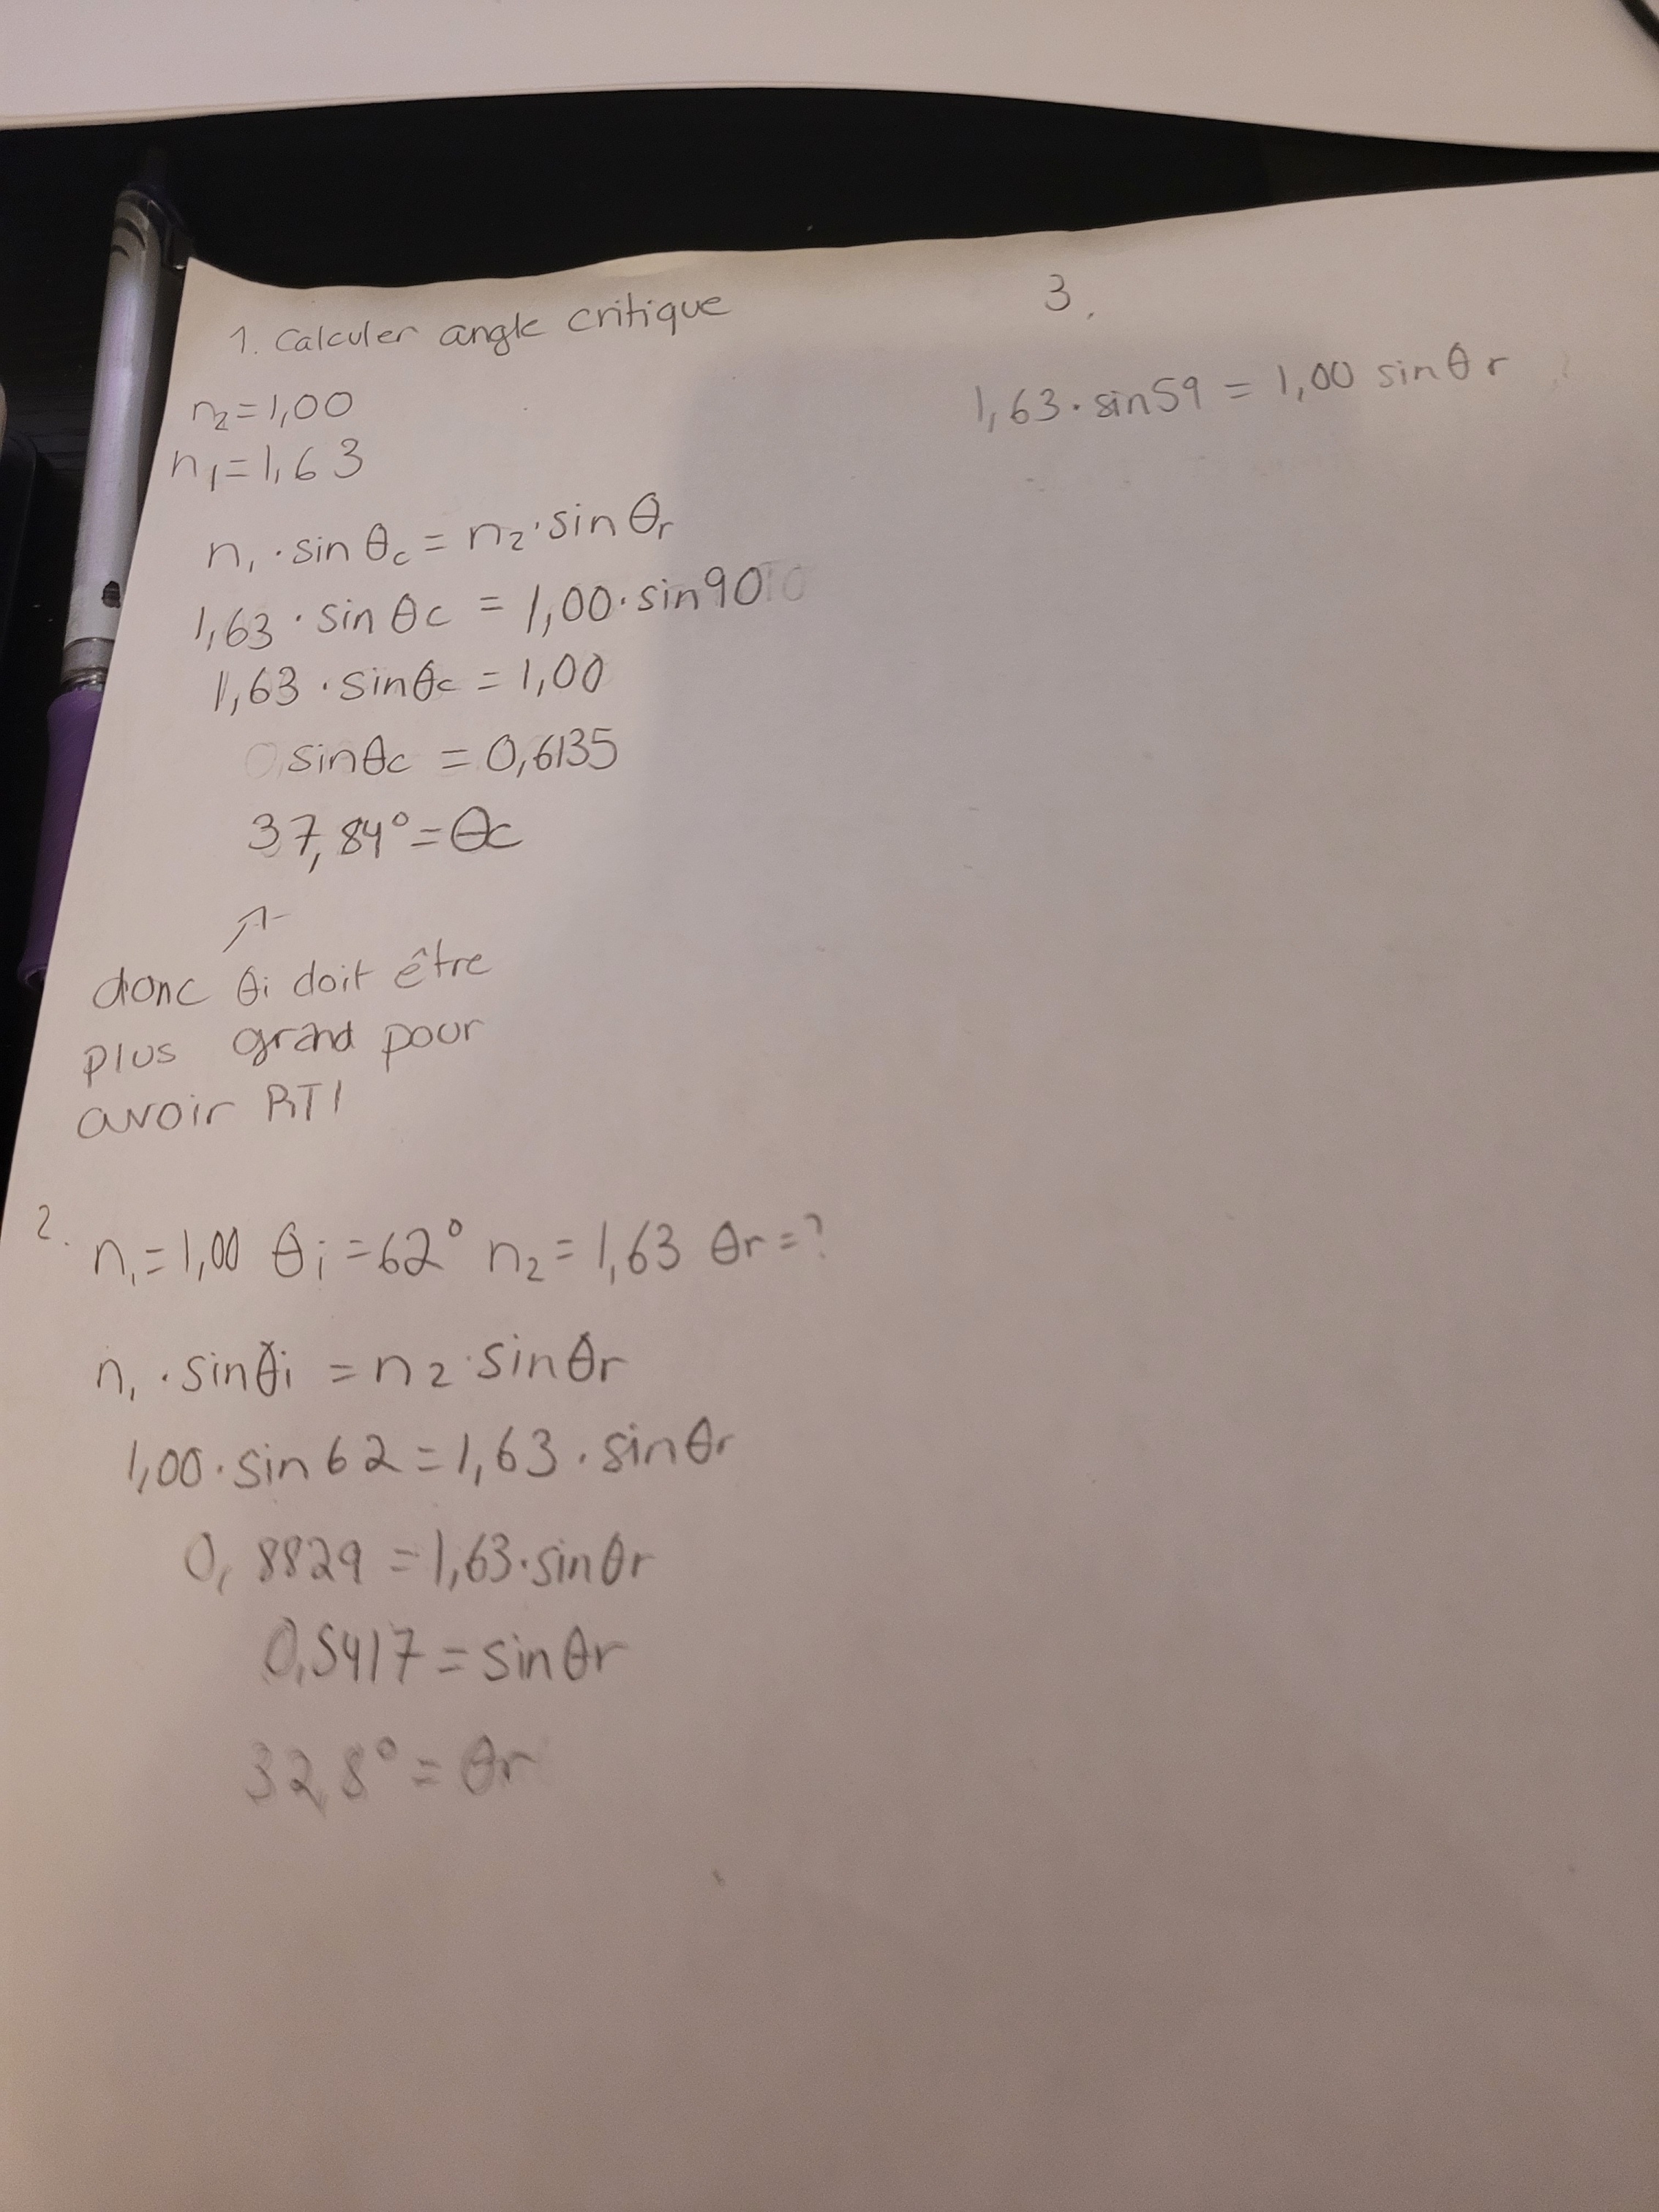 1. Calculer angle critique
n₂=1,00
n₁=1,63
n₁ · sin θc = n₂ · sin θr
1,63 · sin θc = 1,00 · sin90
1,63 · sinθc = 1,00
sinθc = 0,6135
37,84° = θc
donc θi doit être
plus grand pour
avoir RTI
2. n₁=1,00 θi=62° n₂=1,63 θr=?
n₁ · sinθi = n₂ · sinθr
1,00 · sin62 = 1,63 · sinθr
0,8829 = 1,63 · sinθr
0,5417 = sinθr
32,8° = θr
3.
1,63 · sin59 = 1,00 sinθr